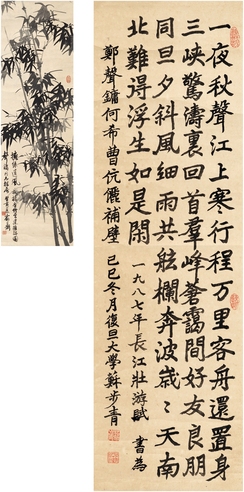 一夜秋聲江上寒行程万里客舟還置身
三峽驚濤裏回首羣峰靄間好友良朋
同旦夕斜風細雨共欄奔波歲々天南
北難得浮生如是閑
一九八七年長江壯游賦 書為
鄭聲鏞何希曹伉儷補壁 己巳冬月復旦大學蘇步青